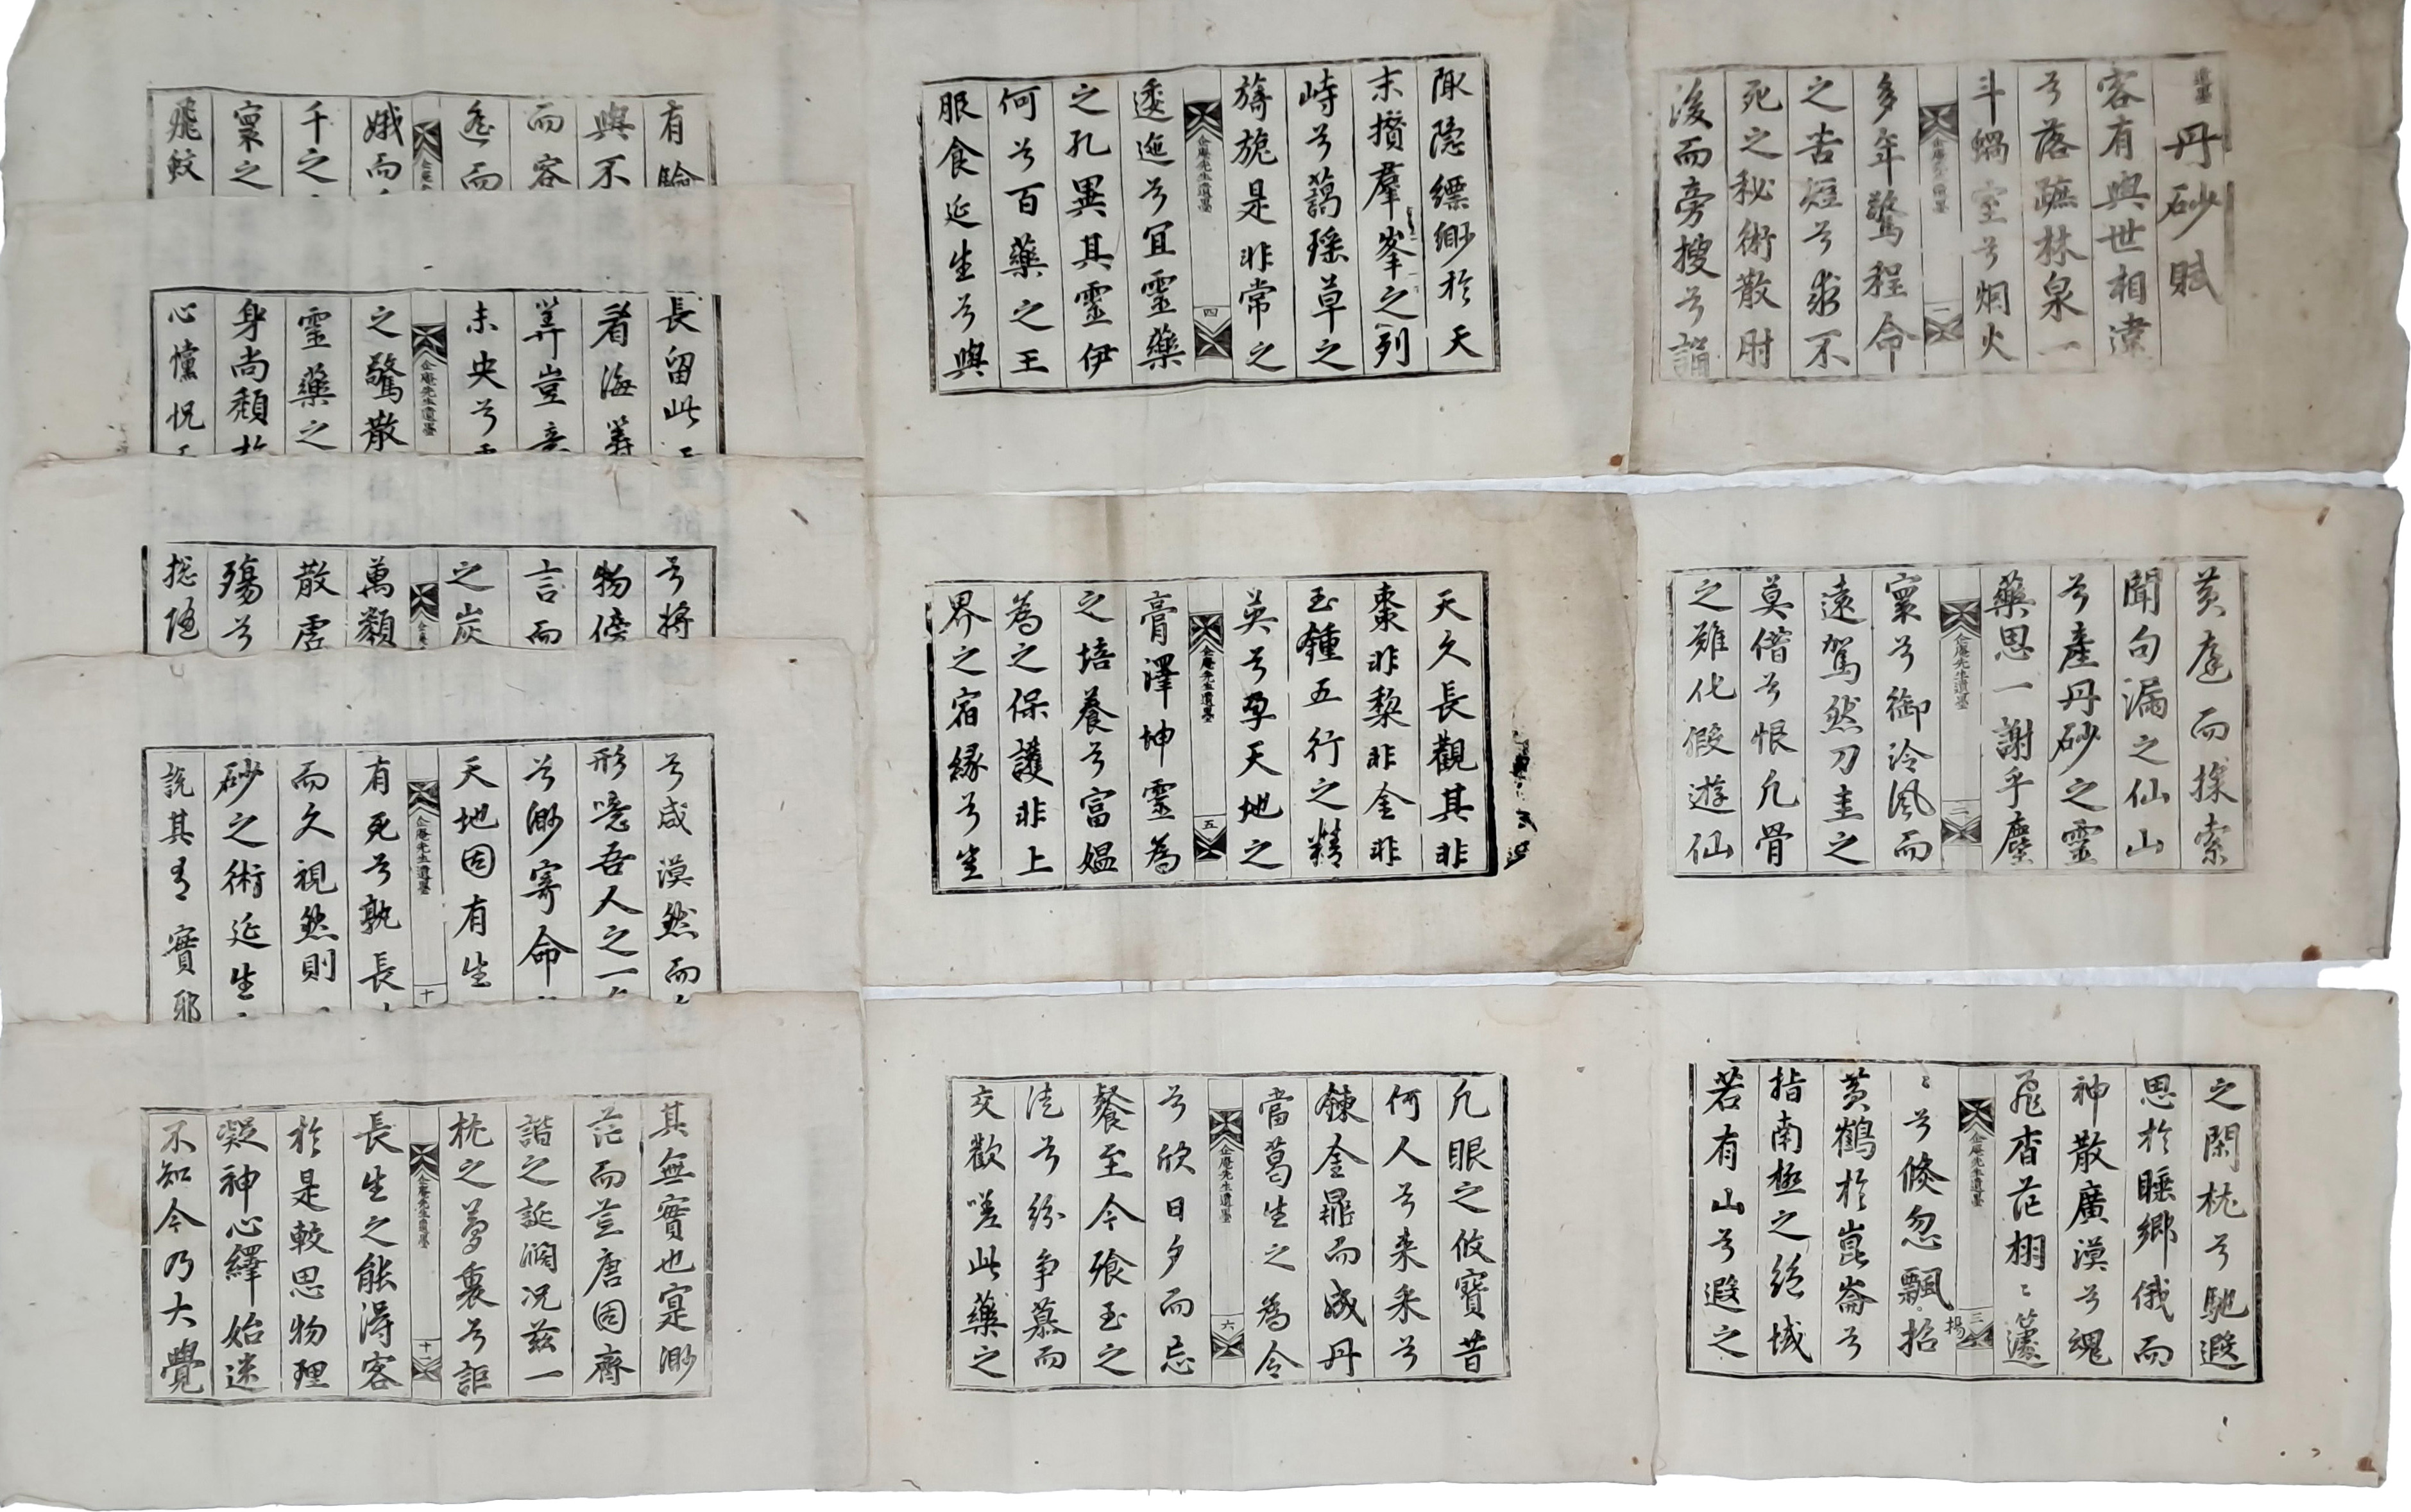 丹砂賦
客有與世相違
兮落蹠林泉一
斗蝸室兮烟火
企庵先生遺墨
一
多年驚程命
之苦短兮求不
死之秘術散肘
後而旁搜兮誦
黃庭而探索
聞句漏之仙山
兮產丹砂之靈
藥思一謝乎塵
企庵先生遺墨
二
寰兮御泠風而
遠駕然刀圭之
莫借兮恨凡骨
之難化假遊仙
之閑枕兮馳遐
思於睡鄉俄而
神散廣漠兮魂
飛杳茫栩〻蘧
企庵先生遺墨
三
〻兮倏忽飄揚招
黃鶴於崑崙兮
指南極之絕域
若有山兮遐之
陬隱縹緲於天
末攢羣峯之列
峙兮藹瑤草之
旖旎是非常之
企庵先生遺墨
四
逶迤兮宜靈藥
之孔異其靈伊
何兮百藥之王
服食延生兮與
天久長觀其非
棗非梨非金非
玉鍾五行之精
英兮孕天地之
企庵先生遺墨
五
膏澤坤靈為
之培養兮富媼
為之保護非上
界之宿緣兮豈
凡眼之攸寶昔
何人兮來采兮
鍊金鼎而成丹
當葛生之為令
企庵先生遺墨
六
兮欣日夕而忘
餐至今飱玉之
徒兮紛爭慕而
交歡嗟此藥之
有驗
與不
而容
遙而
企庵
娥而
千之
寰之
飛鮫
長留此
看海籌
筭豈
未央兮
企庵先生遺墨
之驚散
靈藥之
身尚頹
心戃怳
兮將
物傍
言而
之炭
企庵
萬類
散虛
殤兮
兮咸漠然而
形噫吾人之一
兮渺寄命
天地固有生
企庵先生遺墨
十
有死兮孰長
而久視然則
砂之術延生
說其有實耶
其無實也寔渺
茫而荒唐固齊
諧之誕濶况茲一
枕之夢裏兮詎
企庵先生遺墨
十一
長生之能得客
於是較思物理
凝神心繹始迷
不知今乃大覺